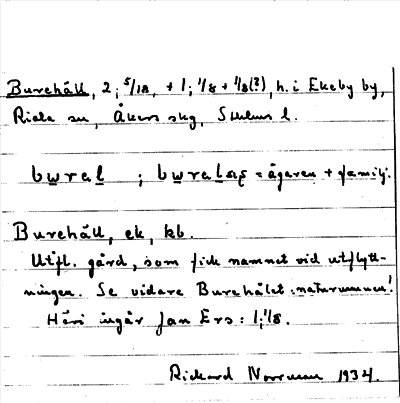 Burehåll, 2; 5/18, + 1; 1/8 + 1/8(?), h. i Ekeby by,
Riala sn, Åkers skg, Sthlms l.
bwral ; bwralas = ägaren + familj.
Burehåll, ek, kb.
Utfl. gård, som fick namnet vid utflytt-
ningen. Se vidare Burehålet: naturnamn!
Häri ingår Jan Ers: 1; 1/8.
Rickard Norrman 1934.